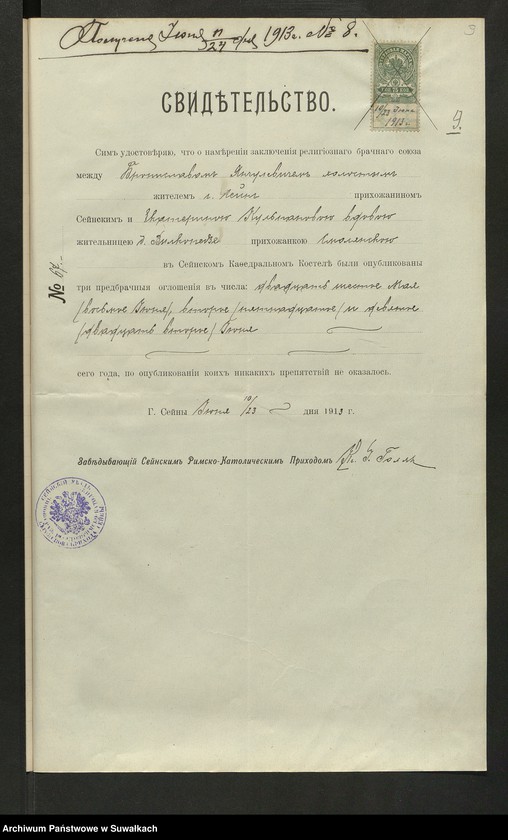 Получено Іюня 11/24 дня 1913 г. № 8.
3
9.
10/23 Іюня
1913 г.
СВИДѢТЕЛЬСТВО.
Симъ удостовѣряю, что о намѣреніи заключенія религіознаго брачнаго союза
между Брониславомъ Янулевичемъ холостымъ
жителемъ г. Сейнъ прихожаниномъ
Сейнскимъ и Екатериною Кульмановою вдовою
жительницею д. прихожанкою Смоленскою
въ Сейнскомъ Каѳедральномъ Костелѣ были опубликованы
три предбрачныя оглошенія въ числа: двадцать шестое Мая
/восьмое Іюня/, второе /пятнадцатое/ и девятое
/двадцать второе/ Іюня
сего года, по опубликованіи коихъ никакихъ препятствій не оказалось.
Г. Сейны Іюня 10/23 дня 1913 г.
Завѣдывающій Сейнскимъ Римско-Католическимъ Приходомъ Кс.
№ 67.
Archiwum Państwowe w Suwałkach